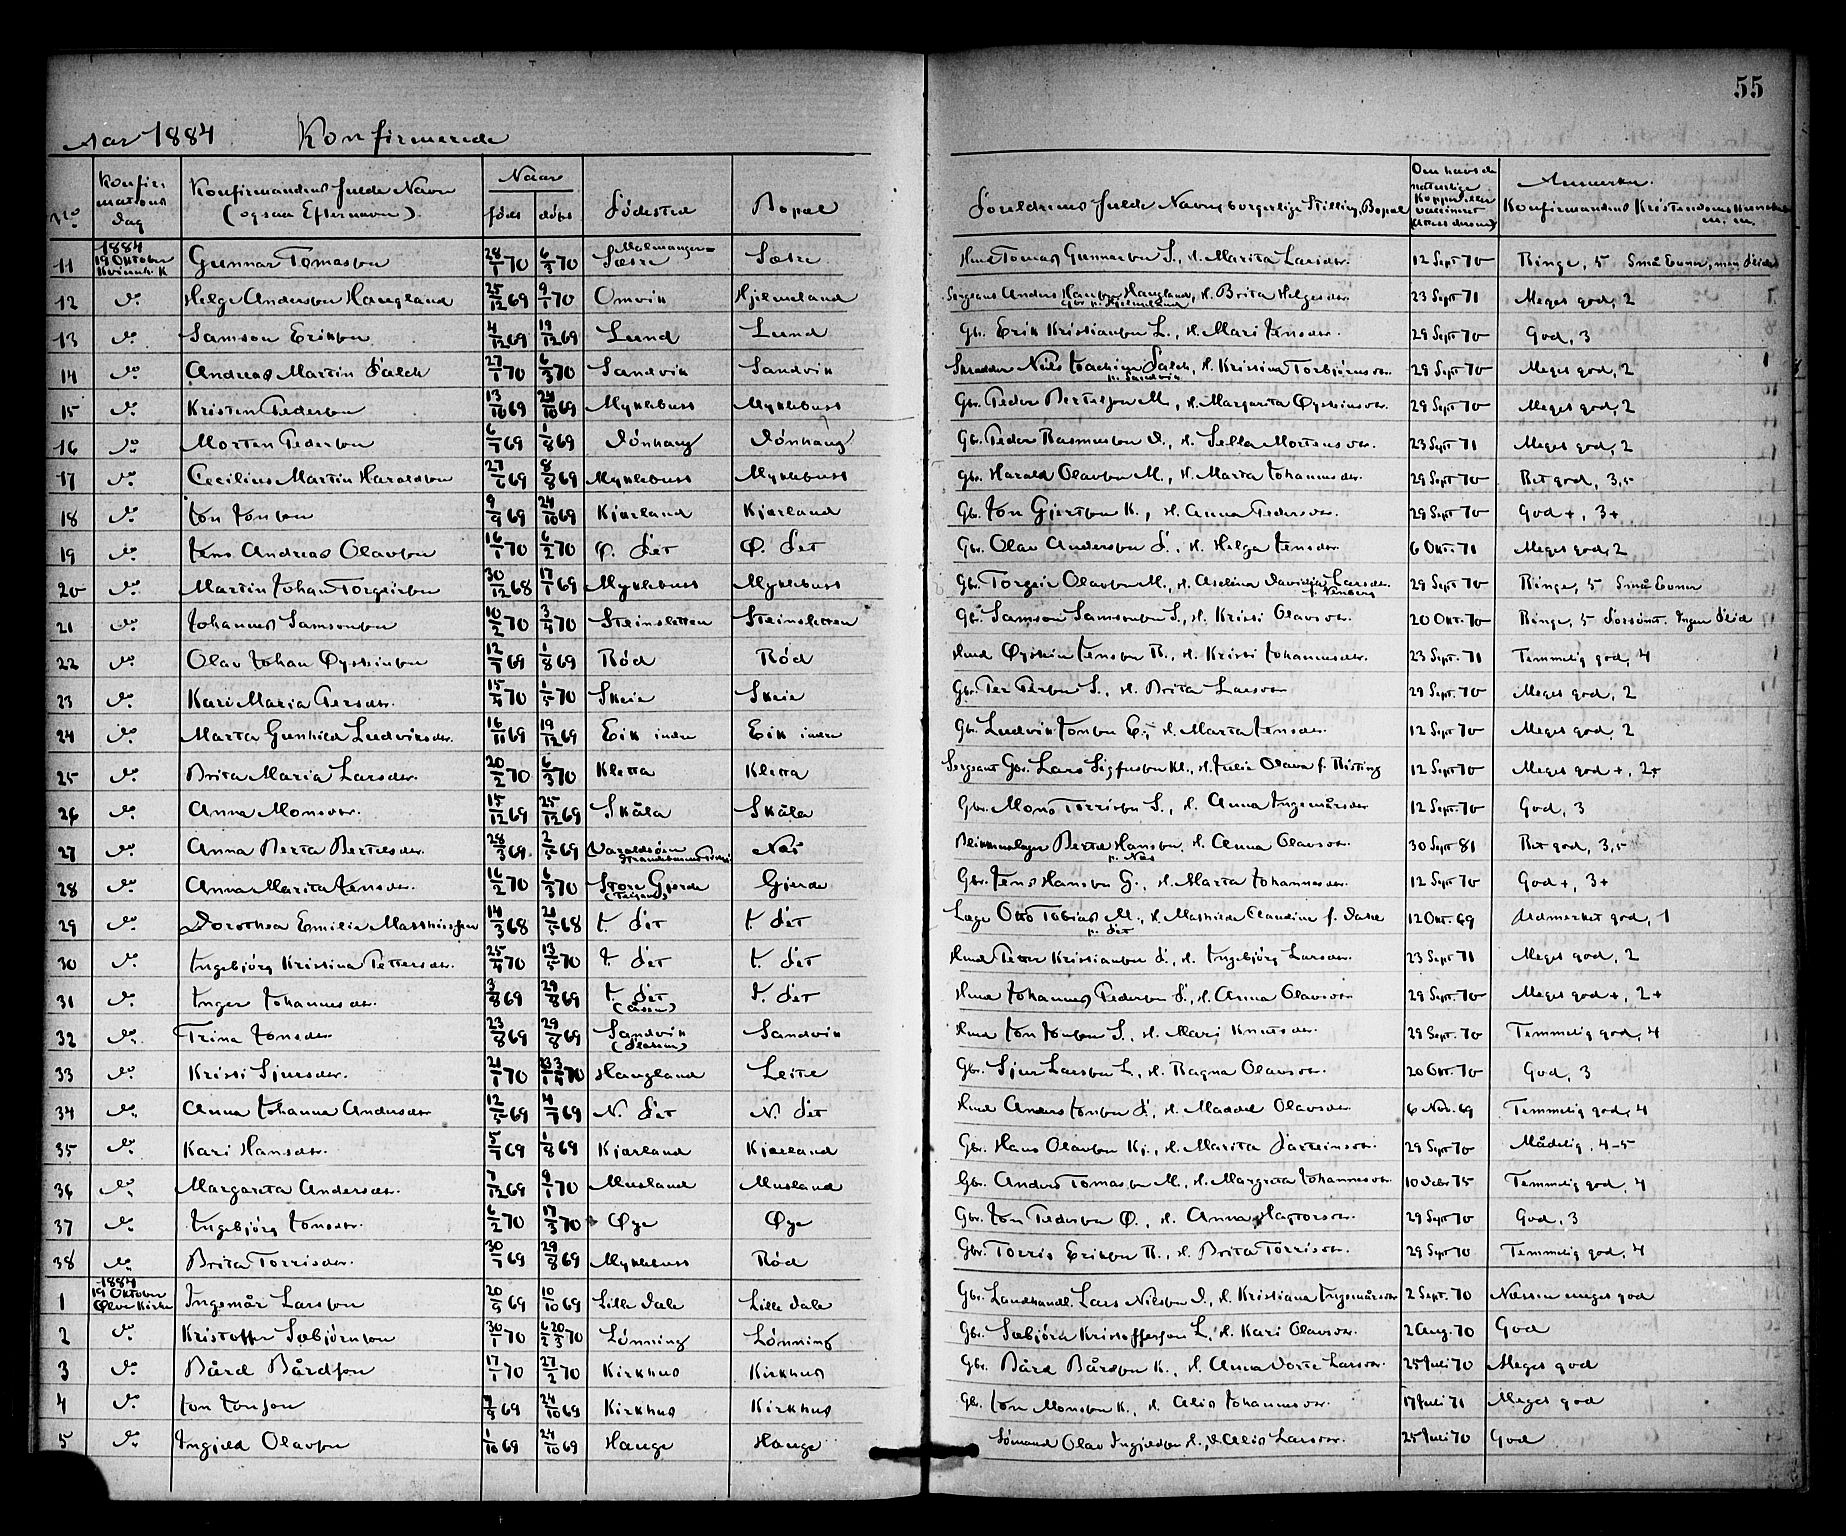 55
Aar 1884 Konfirmerede
No Konfirmations Dag Konfirmandens fulde Navn (ogsaa Efternavn). Naar født døbt Fødested Bopæl Forældrenes fulde Navn, borgerlige Stilling, Bopæl Anmerkn. Konfirmandens Kristendoms Kundskab m. m.
11 1884 19 Oktober Kvinnh. K Gunnar Tomasson 28/1 70 6/3 70 Malmanger- Sætre Sætre Hmd Tomas Gunnarson S., H. Marita Larsdr. 12 Sept 70 Ringe, 5 Små Evner, men flid
12 do Helge Anderson Haugland 25/12 69 9/1 70 Omvik Hjelmeland Sergeant Anders Hanson Haugland, H. Brita Helgesdr. Gbr p. Hjelmeland 23 Sept 71 Meget god, 2
13 do Samson Erikson 4/12 69 19/12 69 Lund Lund Gbr. Erik Kristianson L., H. Mari Jensdr. 29 Sept 70 God, 3
14 do Andreas Martin Falch 27/1 70 6/3 70 Sandvik Sandvik Skredder Nils Joachim Falch, H. Kristina Torbjørnsdr. p. Sandvik 29 Sept 70 Meget god, 2
15 do Kristen Pederson 13/10 69 24/10 69 Myklebust Myklebust Gbr. Peder Bertelson M., H. Margareta Øysteinsdr. 29 Sept 70 Meget god, 2
16 do Morten Pederson 6/7 69 1/8 69 Dønhaug Dønhaug Gbr. Peder Rasmuson D., H. Sella Mortensdr. 23 Sept 71 Meget god, 2
17 do Cecilius Martin Haraldson 27/6 69 8/8 69 Myklebust Myklebust Gbr. Harald Olavson M., H. Marta Johannesdr. 29 Sept 70 Ret god, 3,5
18 do Jon Jonson 9/9 69 24/10 69 Kjærland Kjærland Gb. Jon Gjertson K., H. Anna Pedersdr. 29 Sept 70 God +, 3+
19 do Jens Andreas Olavson 16/1 70 6/2 70 Ø. Fet Ø. Fet Gbr. Olav Anderson F., H. Helga Jensdr. 6 Okt. 71 Meget god, 2
20 do Martin Johan Torgeirson 30/12 68 17/1 69 Myklebust Myklebust Gbr. Torgeir Olavson M., H. Aselina Davidia Larsdr. 29 Sept 70 Ringe, 5 Små Evner
21 do Johannes Samsonson 10/2 70 3/4 70 Steinsletten Steinsletten Gb. Samson Samsonson S., H. Kristi Olavsdr. 20 Okt. 70 Ringe, 5 Forsømt. Ingen flid
22 do Olav Johan Øysteinson 12/7 69 1/8 69 Rød Rød Hmd Øystein Jenson R., H. Kristi Johannesdr. 23 Sept. 71 Temmelig god, 4
23 do Kari Maria Persdr. 15/4 70 1/5 70 Skeie Skeie Gbr. Per Person S., H. Brita Larsdr 29 Sept. 70 Meget god, 2
24 do Marta Gunhild Ludviksdr. 16/11 69 19/12 69 Eik indre Eik indre Gbr. Ludvik Jonson E., H. Marta Jensdr. 12 Sept 70 Meget god, 2
25 do Brita Maria Larsdr. 20/2 70 6/3 70 Kletta Kletta Sergeant Gbr. Lars Sigfuson Kl., H. Julie Olava f. Risting 12 Sept 70 Meget god +, 2+
26 do Anna Monsdr. 15/12 69 25/12 69 Skåla Skåla Gbr. Mons Torrison S., H. Anna Ingemårsdr 12 Sept. 70 God, 3
27 do Anna Berta Bertelsdr. 28/3 69 2/5 69 Varaldsøen Nes Blikkenslager Bertel Hanson, H. Anna Olavsdr p. Nes 30 Sept 81 Ret god, 3,5
28 do Anna Marita Jensdr. 16/2 70 6/3 70 Store Gjerde Gjerde Gbr. Jens Hanson G., H. Marta Johannesdr. 12 Sept 70 God +, 3+
29 do Dorothea Emilie Matthiessen 14/3 68 21/5 68 I. Fet I. Fet Læge Otto Tobias M., H. Mathilde Claudine f. Dahl p. Fet 12 Okt. 69 Udmerket god, 1
30 do Ingebjørg Kristina Pettersdr. 25/4 70 13/5 70 I. Fet I. Fet Hmd Petter Kristianson F., H. Ingebjørg Larsdr 23 Sept 71 Meget god, 2
31 do Inger Johannesdr. 3/8 69 29/8 69 I. Fet I. Fet Hmd Johannes Pederson F., H. Anna Olavsdr 29 Sept. 70 Meget god +, 2+
32 do Trina Jonsdr 23/8 69 29/8 69 Sandvik Sandvik Hmd Jon Jonson S., H. Mari Knutsdr. 29 Sept. 70 Temmelig god, 4
33 do Kristi Sjursdr. 21/1 70 Haugland Leite Gbr. Sjur Larson L., H. Ragna Olavsdr. 20 Okt. 70 God, 3
34 do Anna Johanna Andersdr 12/5 69 4/7 69 N. Fet N. Fet Hmd Anders Jonson F., H. Maddel Olavsdr. 6 Nov. 69 Temmelig god, 4
35 do Kari Hansdr. 5/7 69 1/8 69 Kjærland Kjærland Gbr. Hans Olavson Kj., H. Marita Farteinsdr. 29 Sept 70 Mådelig, 4-5
36 do Margareta Andersdr. 7/12 69 9/1 70 Musland Musland Gbr. Anders Tomasson M., H. Margreta Johannesdr. 75 Temmelig god, 4
37 do Ingebjørg Jonsdr. 6/2 70 17/3 70 Øye Øye Gbr. Jon Pederson Ø., H. Anna Hagtorsdr. 29 Sept 70 God, 3
38 do Brita Torrisdr. 30/7 69 29/8 69 Myklebust Rød Gbr. Torris Erikson R., H. Brita Torrisdr. 29 Sept 70 Temmelig god, 4
1 1884 19 Oktober Ølve Kirke Ingemår Larson 20/9 69 10/10 69 Lille Dale Lille Dale Gbr. Landhandl. Lars Nilson D., H. Kristiana Ingemårsdr 2 Sept. 70 Næsten meget god
2 do Kristoffer Sæbjørnson 30/1 70 Lønning Lønning Gb. Sæbjørn Kristofferson L., H. Kari Olavsdr. 2 Aug. 70 God
3 do Bård Bårdson 17/1 70 27/2 70 Kirkhus Kirkhus Gbr. Bård Bårdson K., H. Anna Dorte Larsdr. 25 Juli 70 Meget god
4 do Jon Jonson 7/9 69 24/10 69 Kirkhus Kirkhus Gb. Jon Monson K., H. Alis Johannesdr. 17 Juli 71 Meget god
5 do Ingjeld Olavson 1/10 69 24/10 69 Hauge Hauge Sømand Olav Ingjeldson H., H. Alis Larsdr. 25 Juli 70 God